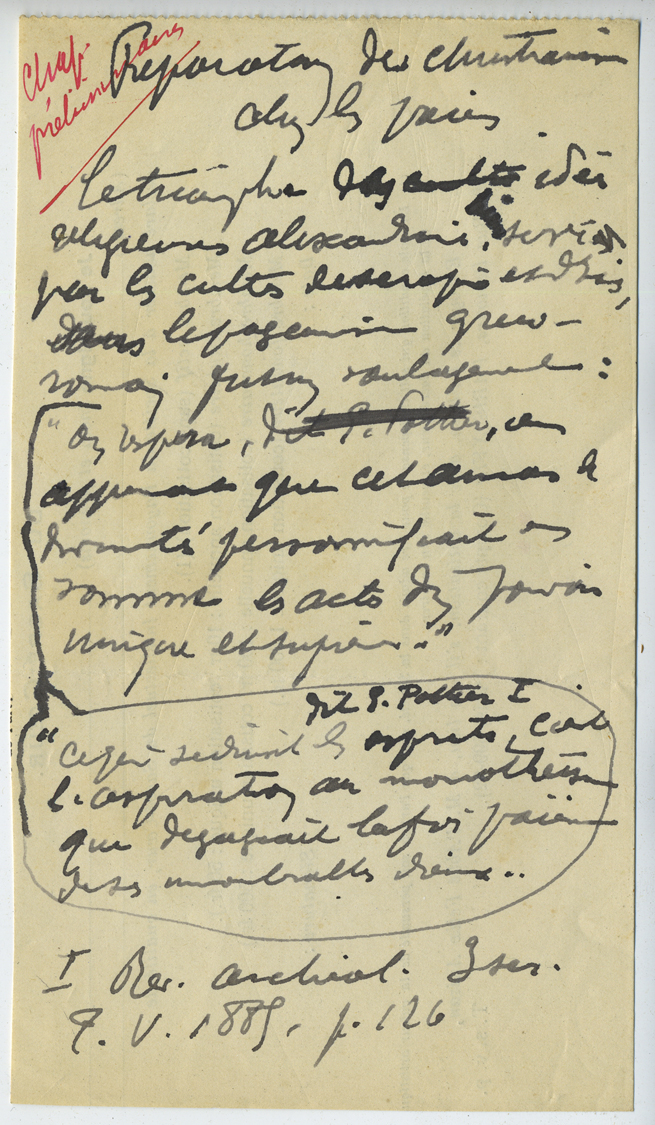 Chap.
préliminaires
Préparation du christianisme
chez les païens
Le triomphe des culte idées
religieuses alexandrines,
par les cultes de Serapis et d'Isis,
dans le paganisme greco-
romain fut un soulagement :
"On respira, dit E. Pottier, en
apprenant que cet amas de
divinités personnifiait en
somme les actes d'un pouvoir
unique et supérieur."
dit E. Pottier I
"Ce qui séduisit les esprits, c'est
l'aspiration au monothéisme
que dégageait la foi païenne
de ses innombrables dieux..
I Rev. archéol. 3 ser.
T. V. 1885, p. 126